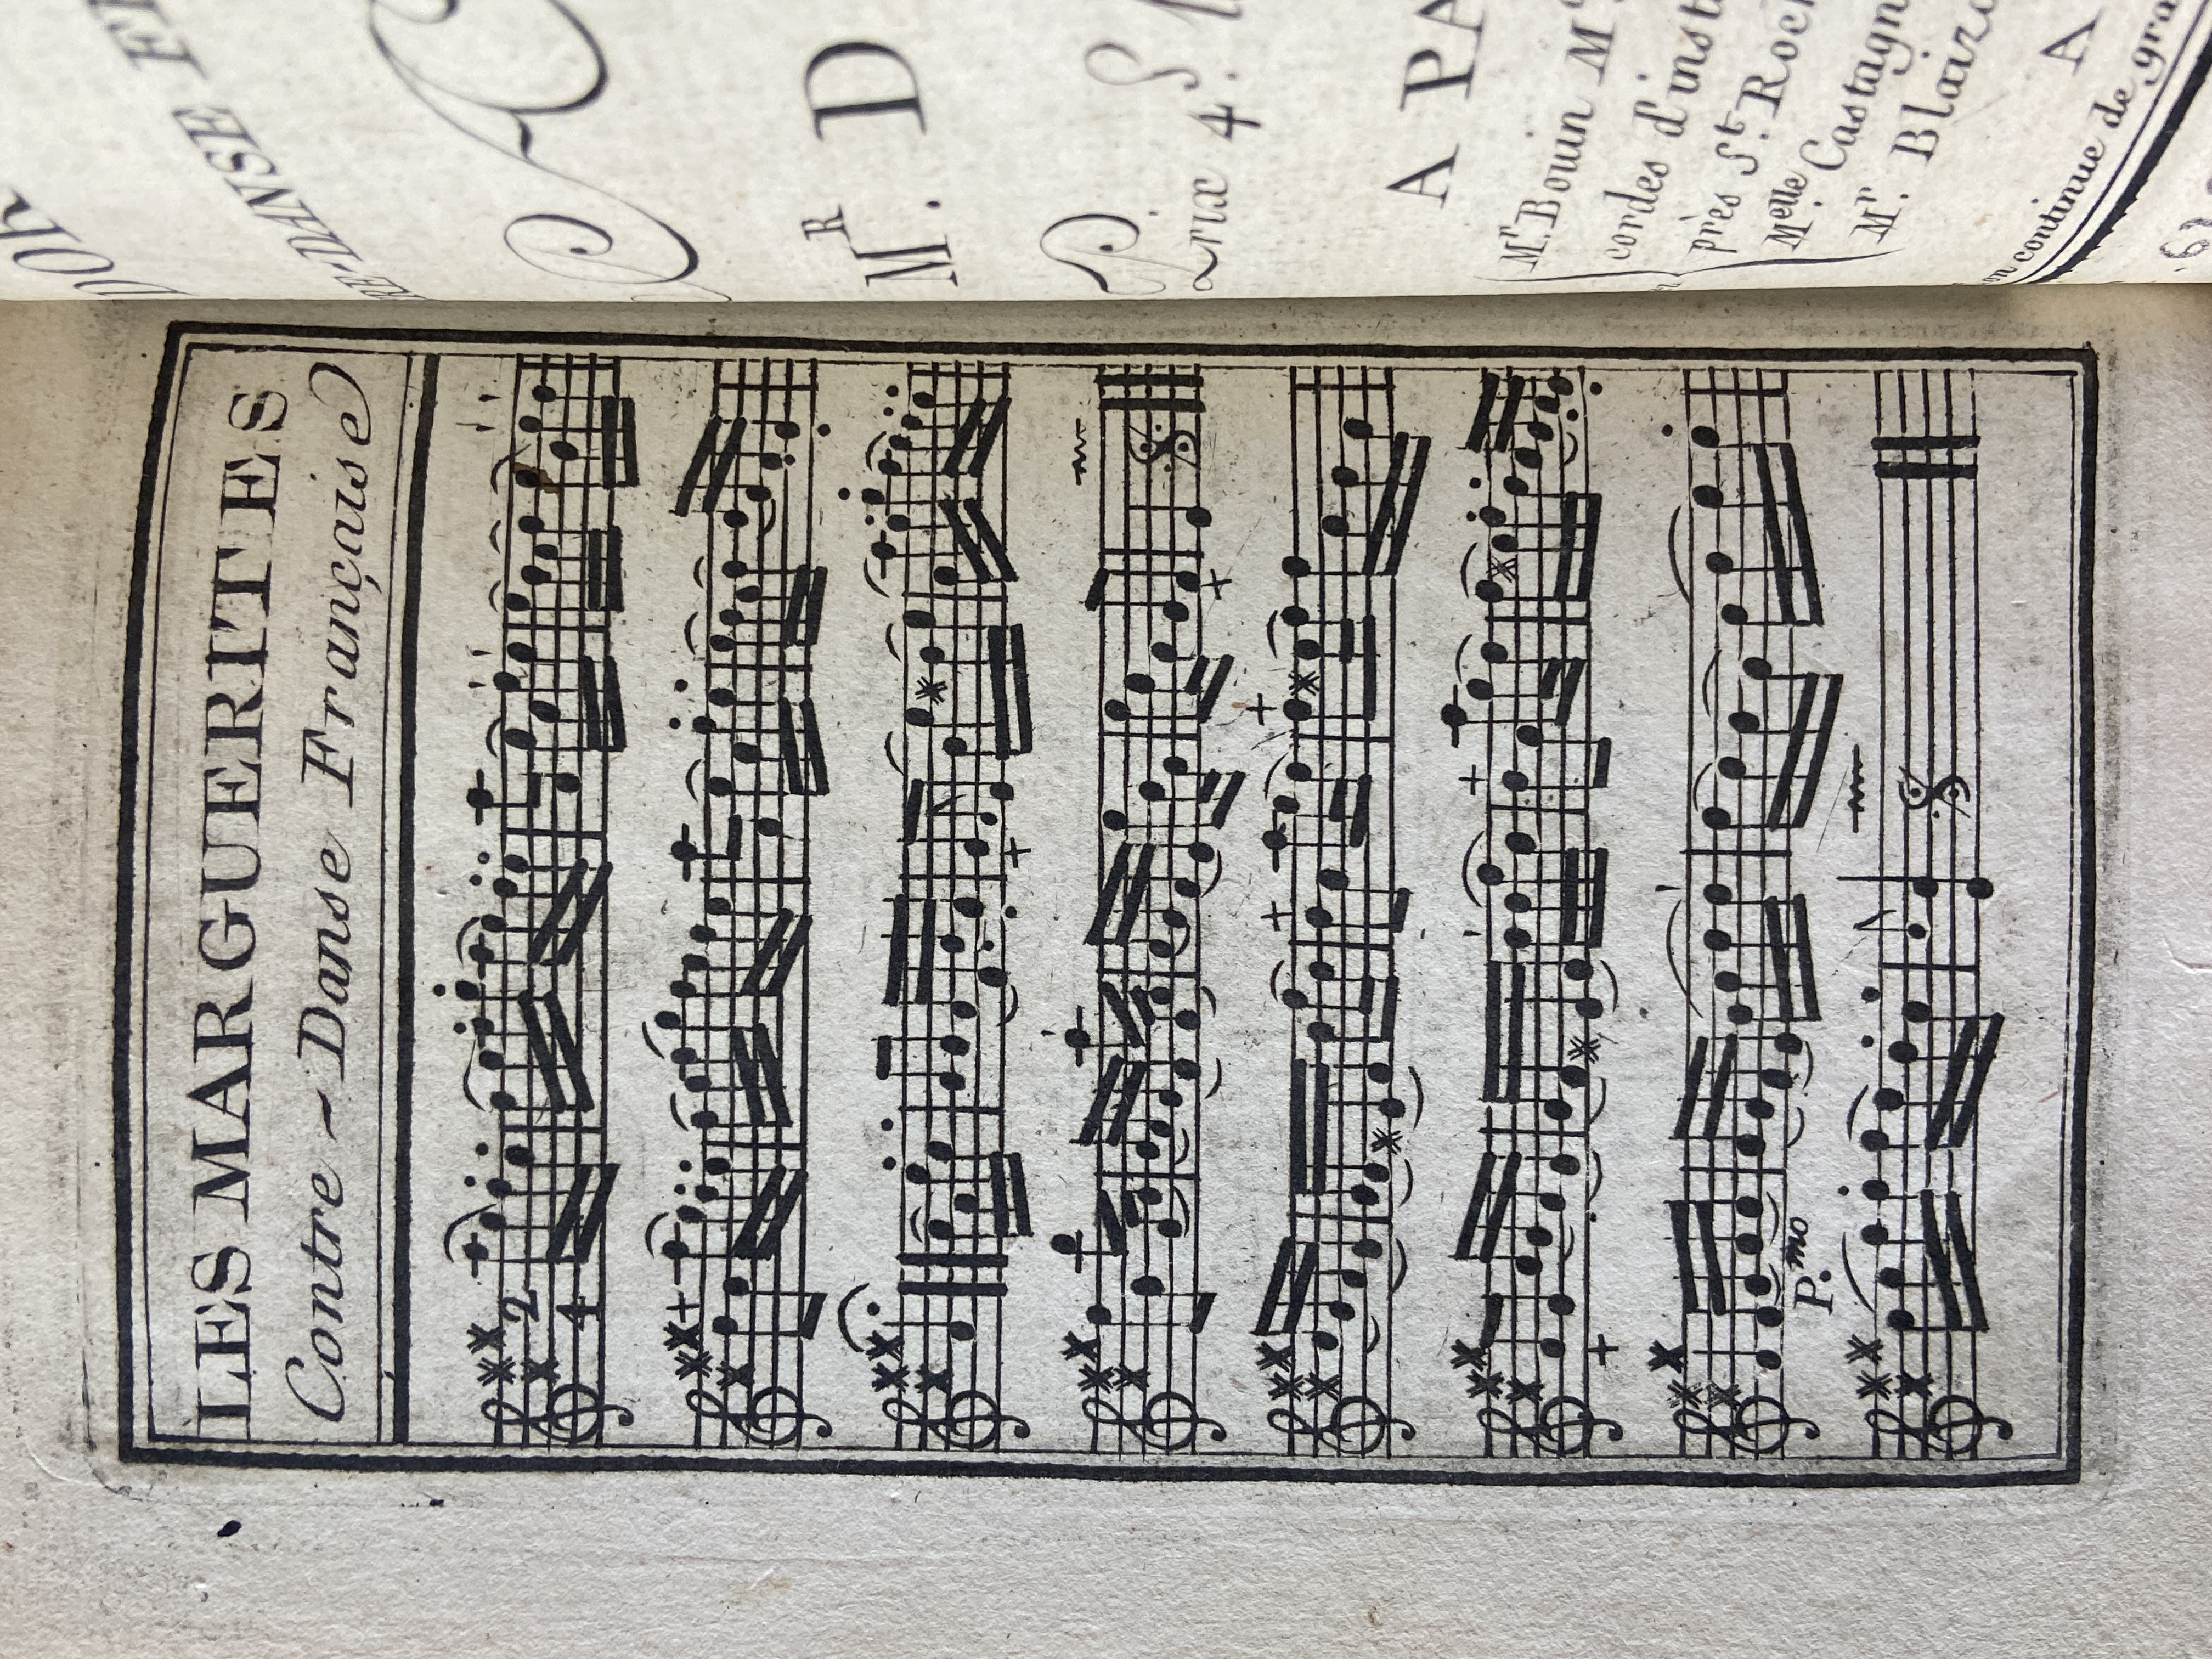 LES MARGUERITTES
Contre~Danse Française
2
4
P.mo
RE-DANSE
M.R D
Prix 4.
A PA
Mr. Bouin M
cordes d'inst
près St. Roch
Melle Castagn
Mr. Blaizo
A
on continue de gra